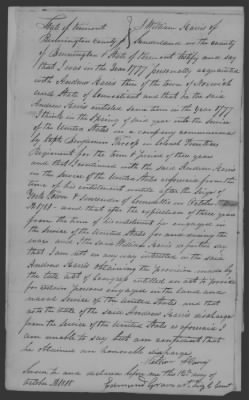 State of Vermont } I William Harris of
Bennington County } Sunderland in the County
of Bennington & State of Vermont testify and say
that I was in the year 1777 personally acquainted
with Andrew Harris then of the town of Norwich
and State of Connecticut and that he the said
Andrew Harris enlisted some time in the year 1777
I think in the Spring of said year into the Service
of the United States in a company commanded
by Capt Benjamin Throop in Colonel
Regiment for the term of three years
and that I continued with the said Andrew Harris
in the service of the United States aforesaid from the
time of his enlistment until after the Siege of
York Town & Surrender of Cornwallis in October
and that after the expiration of three years
from the time of his enlistment he engaged in
the service of the United States for and during the
war and I the said William Harris do further say
that I am not in any way interested in the said
Andrew Harris obtaining the provision made by
the late act of Congress entitled an act to provide
for certain persons engaged in the land and
naval Service of the United States and that
as to the date of the said Andrew Harris discharge
from the service of the United States as aforesaid I
am unable to say but am confident that
he obtained an honorable discharge
William Harris
Sworn to and declared before me the day of
October 1818